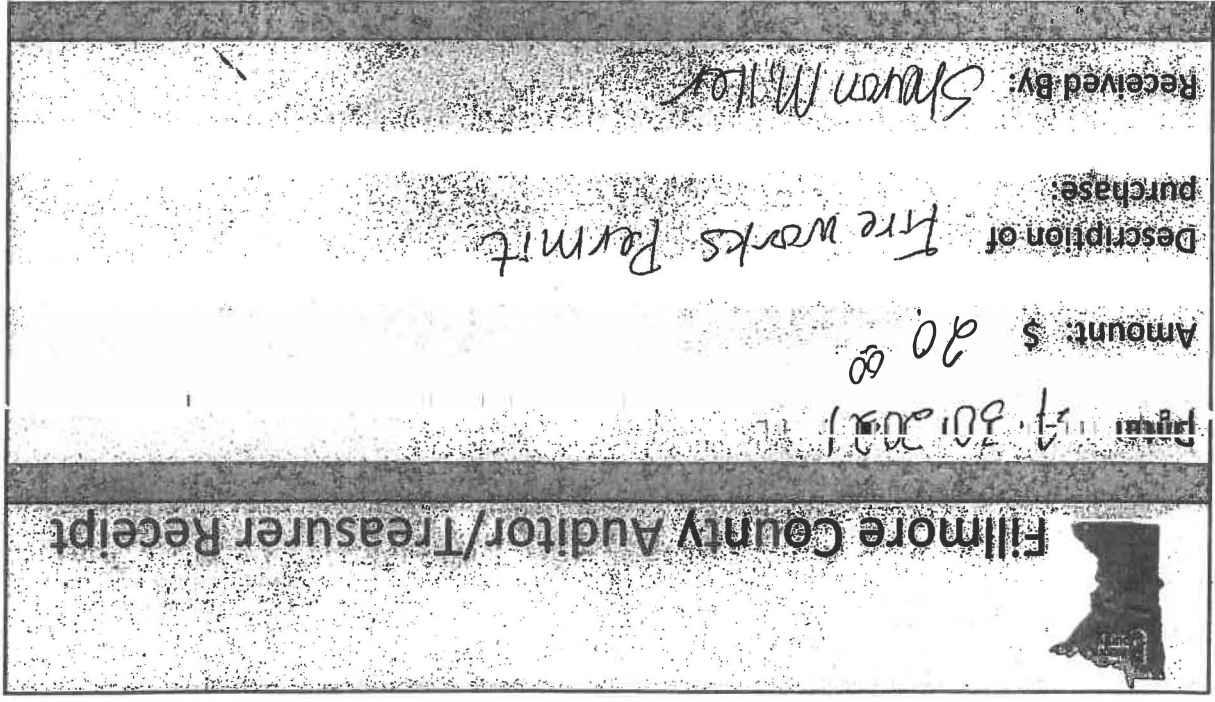 Fillmore County Auditor/Treasurer Receipt
Date: 30. 2021
Amount: $ 20.00
Description of Fire works Permit
purchase:
Received By: Sharon Miller